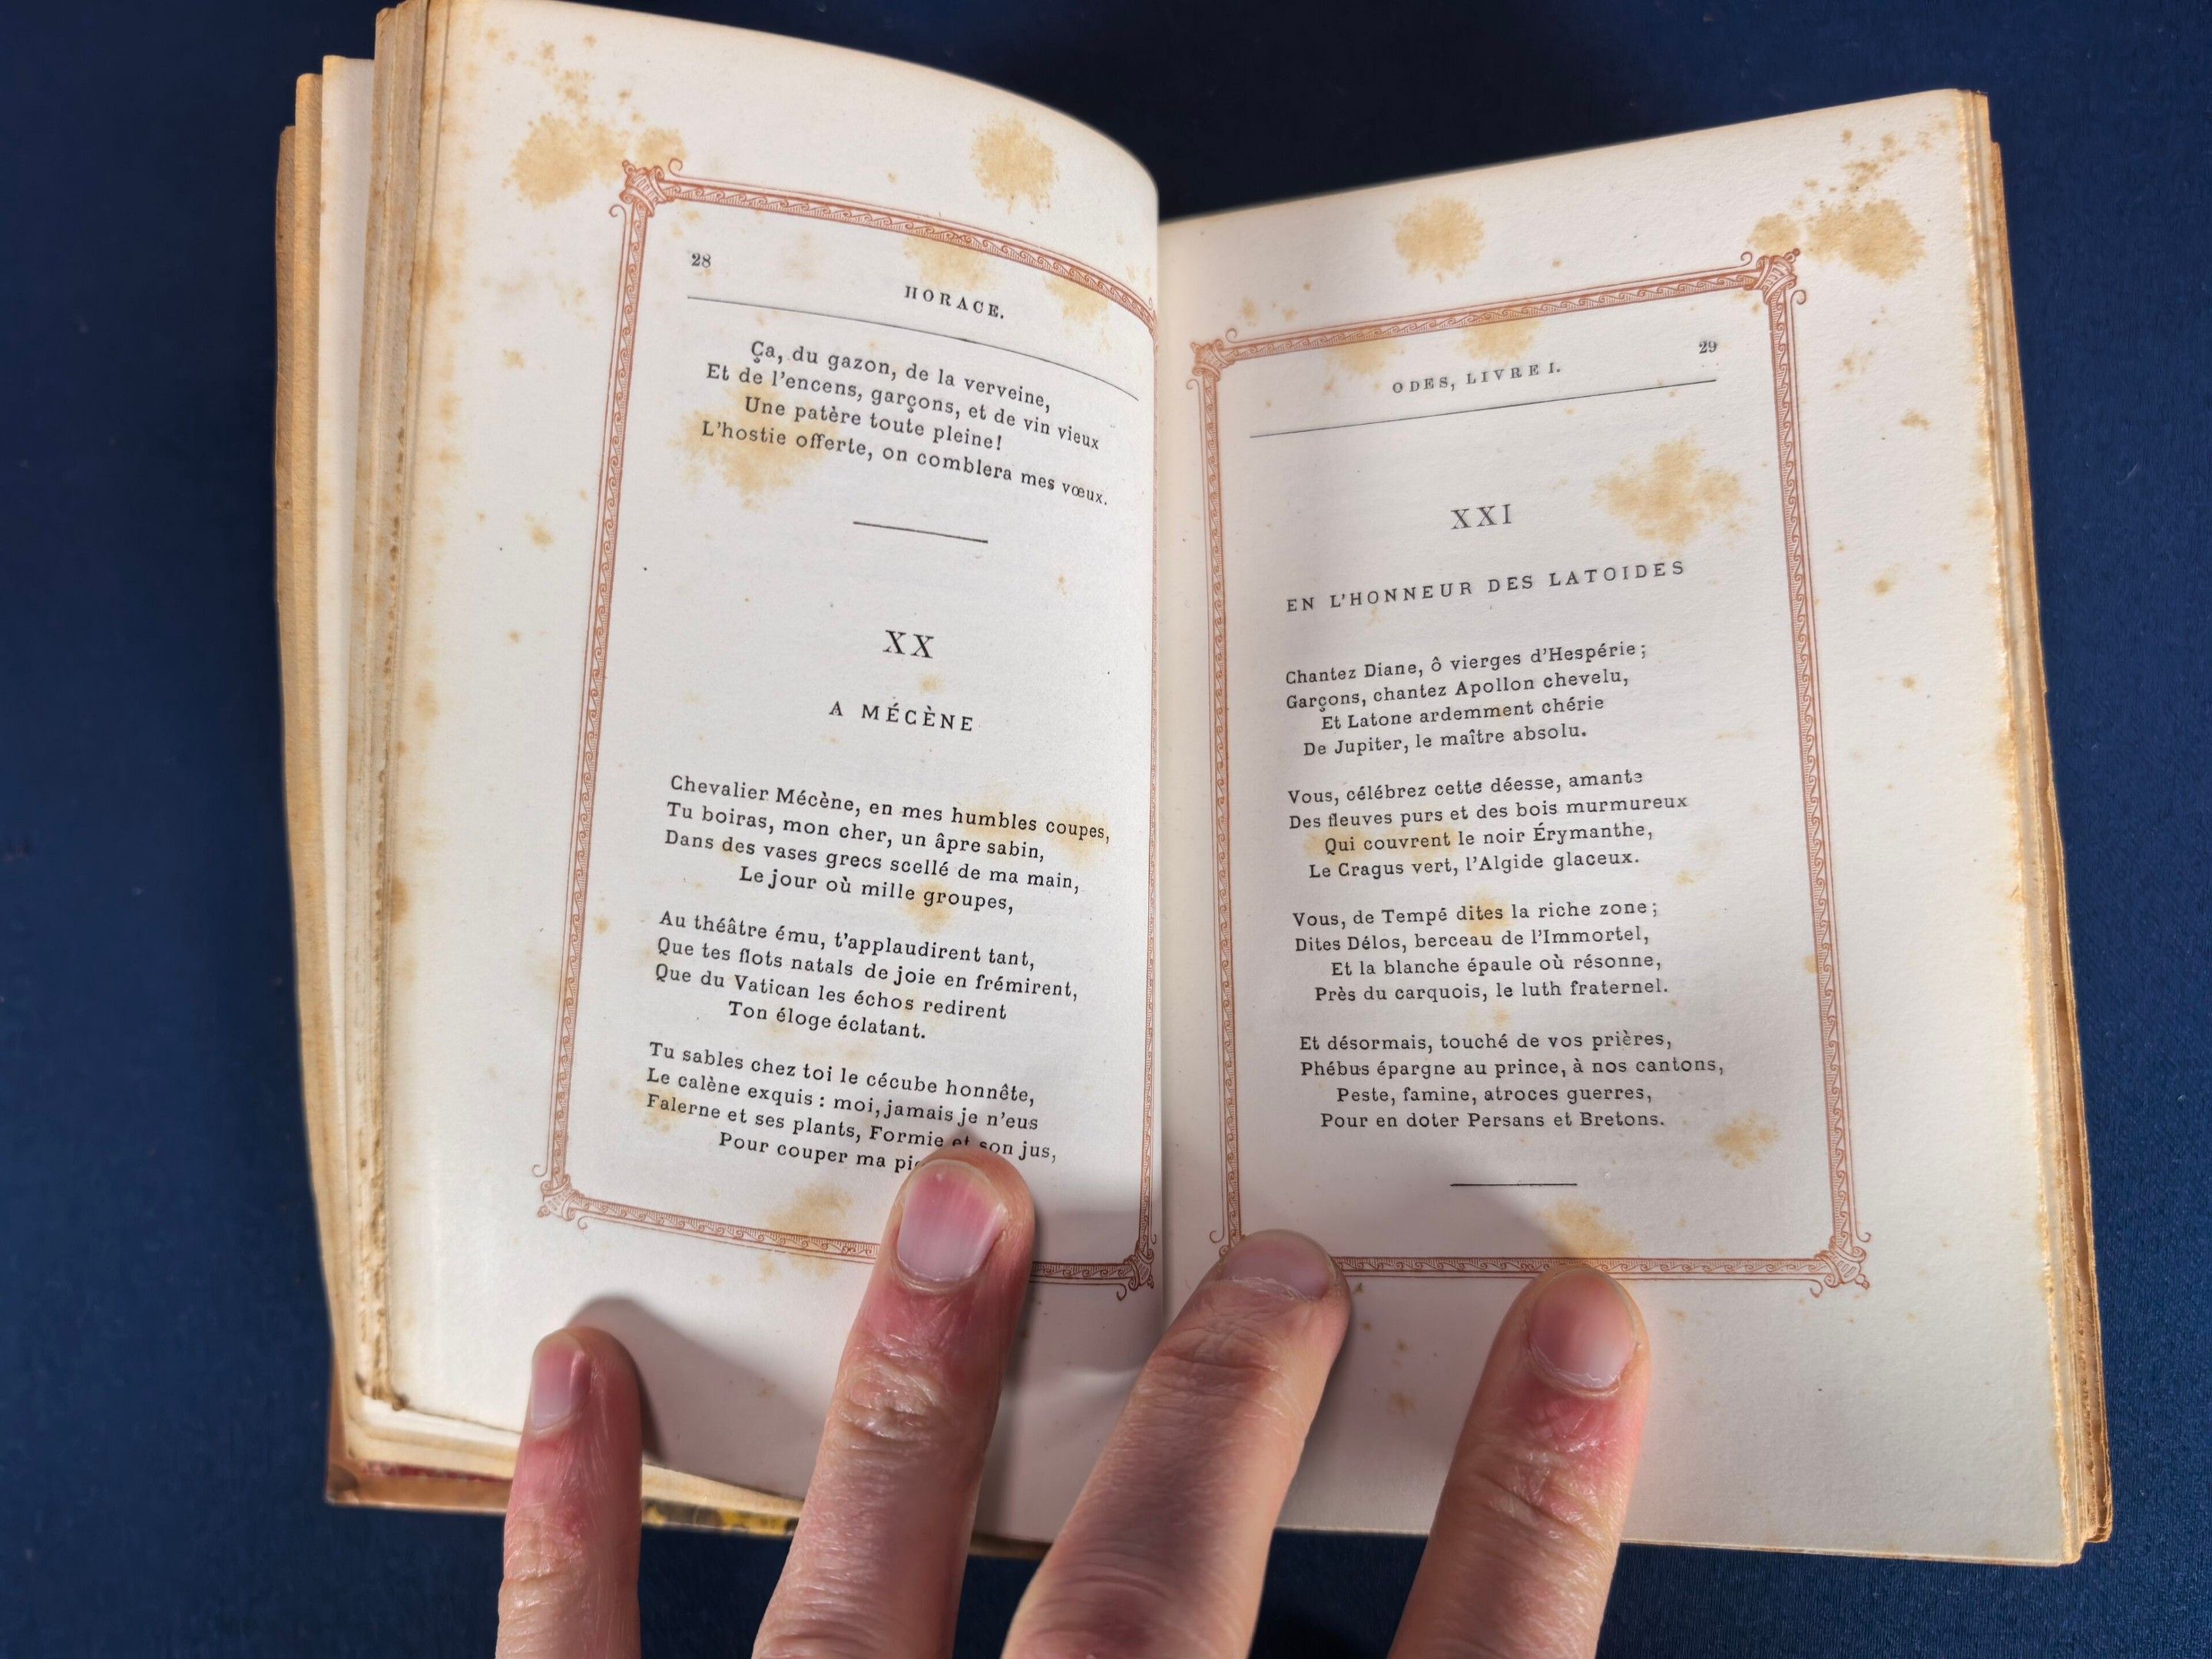 28
HORACE.
Ça, du gazon, de la verveine,
Et de l'encens, garçons, et de vin vieux
Une patère toute pleine!
L'hostie offerte, on comblera mes vœux.
XX
A MÉCÈNE
Chevalier Mécène, en mes humbles coupes,
Tu boiras, mon cher, un âpre sabin,
Dans des vases grecs scellé de ma main,
Le jour où mille groupes,
Au théâtre ému, t'applaudirent tant,
Que tes flots natals de joie en frémirent,
Que du Vatican les échos redirent
Ton éloge éclatant.
Tu sables chez toi le cécube honnête,
Le calène exquis : moi, jamais je n'eus
Falerne et ses plants, Formie et son jus,
Pour couper ma
29
ODES, LIVRE I.
XXI
EN L'HONNEUR DES LATOIDES
Chantez Diane, ô vierges d'Hespérie;
Garçons, chantez Apollon chevelu,
Et Latone ardemment chérie
De Jupiter, le maître absolu.
Vous, célébrez cette déesse, amante
Des fleuves purs et des bois murmureux
Qui couvrent le noir Érymanthe,
Le Cragus vert, l'Algide glaceux.
Vous, de Tempé dites la riche zone;
Dites Délos, berceau de l'Immortel,
Et la blanche épaule où résonne,
Près du carquois, le luth fraternel.
Et désormais, touché de vos prières,
Phébus épargne au prince, à nos cantons,
Peste, famine, atroces guerres,
Pour en doter Persans et Bretons.